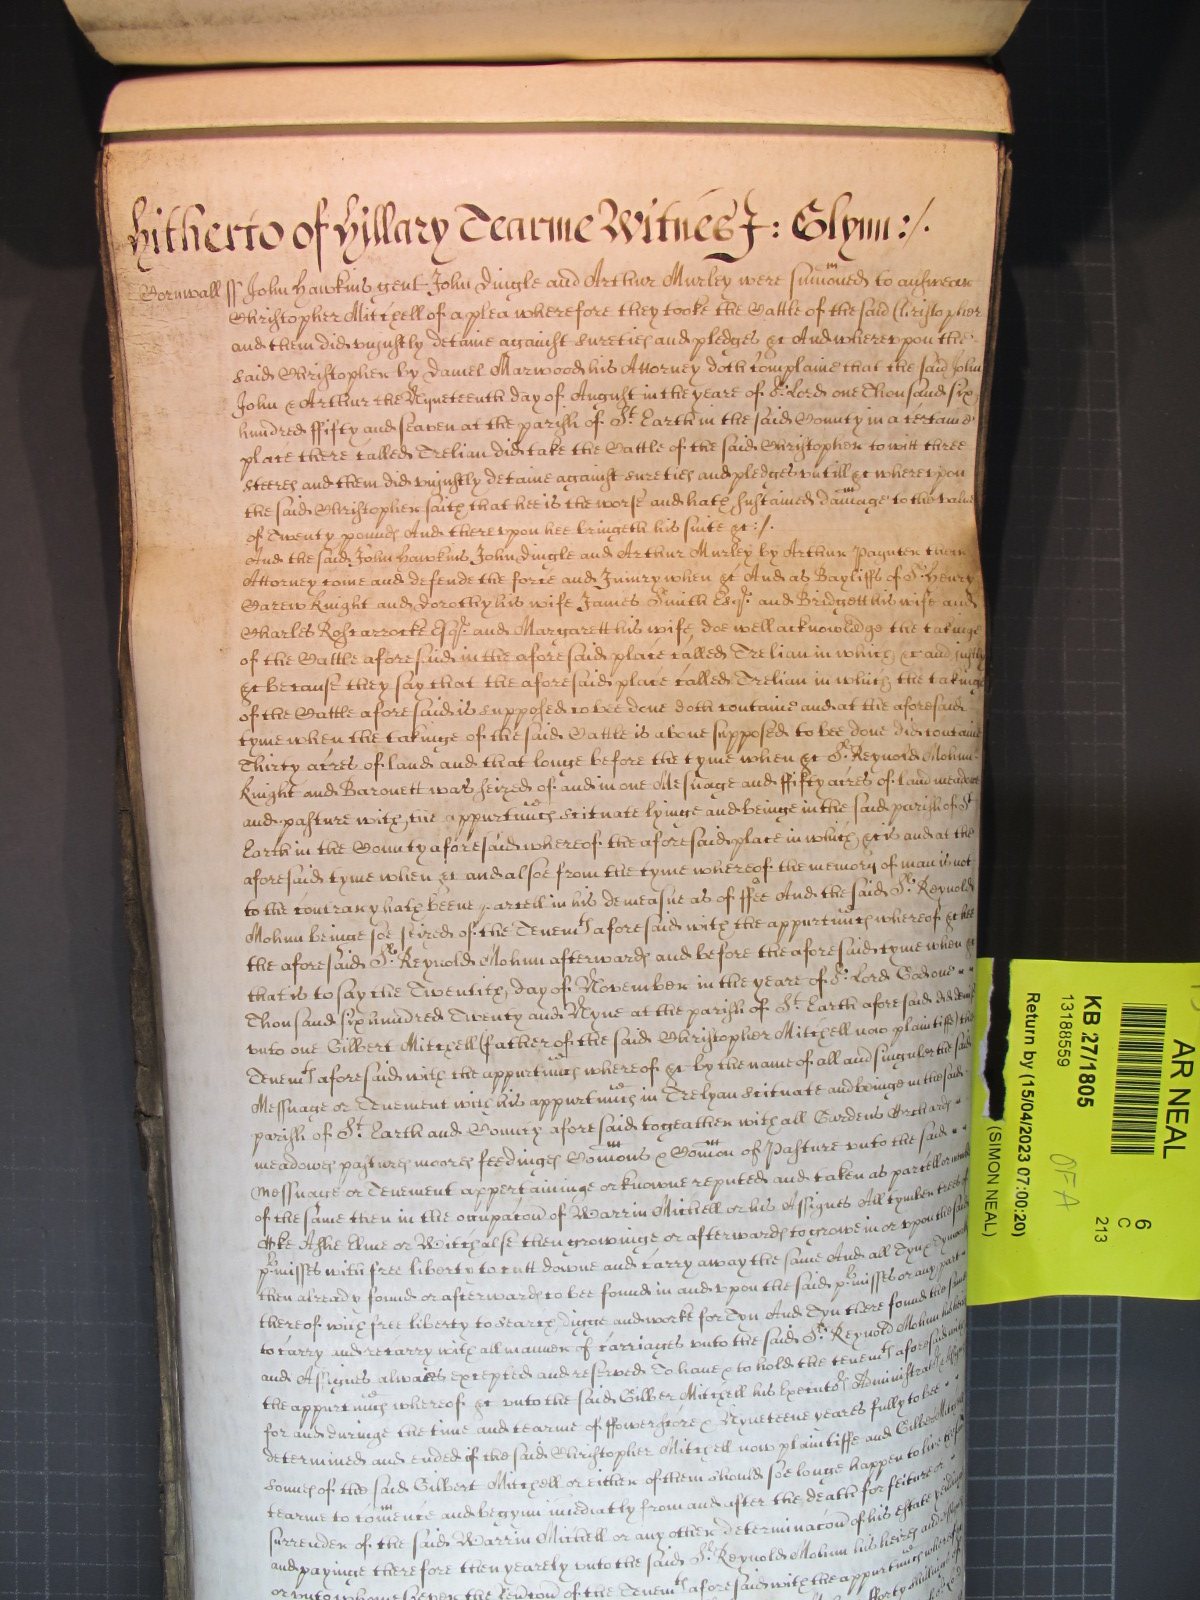 hitherto of Hillary Tearme Witnes J: Glynn:/.
Cornwall ss John Hawkins gent John Dingle and Arthur Murley were sumoned to answear
Christopher Mitchell of a plea wherefore they tooke the Cattle of the said Christopher
and them did uniustly detaine against sureties and pledges &c And whereupon the
said Christopher by Daniel Marwood his Attorney doth complaine that the said John
John & Arthur the Nyneteenth day of August in the yeare of or Lord one Thousand six
hundred ffifty and seaven at the parish of St Earth in the said County in a certaine
place there called Trelian did take the Cattle of the said Christopher to witt three
steeres and them did uniustly detaine against sureties and pledges untill &c whereupon
the said Christopher saith that hee is the worse and hath sustained damage to the value
of Twenty pounds And thereupon hee bringeth his suite &c:/.
And the said John Hawkins John Dingle and Arthur Murley by Arthur Paynter their
Attorney come and defende the force and Iniury when &c And as Bayliffs of Sr Henry
Carew Knight and Dorothy his wife James Smith Esqr and Bridgett his wife and
Charles Roscarrocke Esqr and Margarett his wife doe well acknowledge the takinge
of the Cattle aforesaid in the aforesaid place called Trelian in which &c and justly
&c because they say that the aforesaid place called Trelian in which the takinge
of the Cattle aforesaid is supposed to bee done doth containe and at the aforesaid
tyme when the takinge of the said Cattle is above supposed to bee done did containe
Thirty acres of land and that longe before the tyme when &c Sr Reynold Mohun
Knight and Baronett was seized of and in one Messuage and ffifty acres of land meadow
and pasture with the appurtnces scituate lyinge and beinge in the said parish of St
Earth in the County aforesaid whereof the aforesaid place in which &c is and at the
aforesaid tyme when &c and alsoe from the tyme whereof the memory of man is not
to the contrary hath beene parcell in his demeasne as of ffee And the said Sr Reynold
Mohun beinge soe seized of the Tenemts aforesaid with the appurtnces whereof &c hee
the aforesaid Sr Reynold Mohun afterwards and before the aforesaid tyme when &c
that is to say the Twentith day of November in the yeare of or Lord God one
Thousand six hundred Twenty and Nyne at the parish of St Earth aforesaid did demise
unto one Gilbert Mitchell (father of the said Christopher Mitchell now plaintiffe) the
Tenemts aforesaid with the appurtnces whereof &c by the name of all and singuler the said
Messuage or Tenement with his appurtnces in Trelyan scituate and beinge in the said
parish of St Earth and County aforesaid togeather with all Gardens Orchards
meadowes pastures moores feedinges Comons & Comon of Pasture unto the said
messuage or Tenement appertaininge or knowne reputed and taken as parcell or member
of the same then in the occupacon of Warrin Mitchell or his Assignes All tymber trees of
Oke Ashe Elme or Witchalse then growinge or afterwards to growe in or upon the said
pmisses with free liberty to cutt downe and carry away the same And all Tyn
then already found or afterwards to bee found in and upon the said pmisses or any part
thereof with free liberty to search digge and worke for Tyn And Tyn there found the same
to carry and recarry with all manner of carriages unto the said Sr Reynold Mohun his heires
and Assignes alwaies excepted and reserved To have & to hold the tenemts aforesaid with
the appurtnces whereof &c unto the said Gilber Mitchell his Executors Administrators
for and duringe the time and tearme of ffowerscore & Nyneteene yeares fully to bee
determined and ended if the said Christopher Mitchell now plaintiffe and Gilbert Mitchell
sonnes of the said Gilbert Mitchell or either of them should soe longe happen to live
tearme to comence and begynn imediatly from and after the death forfeiture or
surrender of the said Warrin Mitchell or any other determinacon of his estate
and payinge therefore then yearely unto the said Sr Reynold Mohun his heires and
or unto whomsoever the revercon of the Tenemts aforesaid with the appurtnces whereof
fforty shillings
AR NEAL
KB 27/1805
13188559
Return by (15/04/2023 07:00:20)
(SIMON NEAL)
6
C
213
OFA